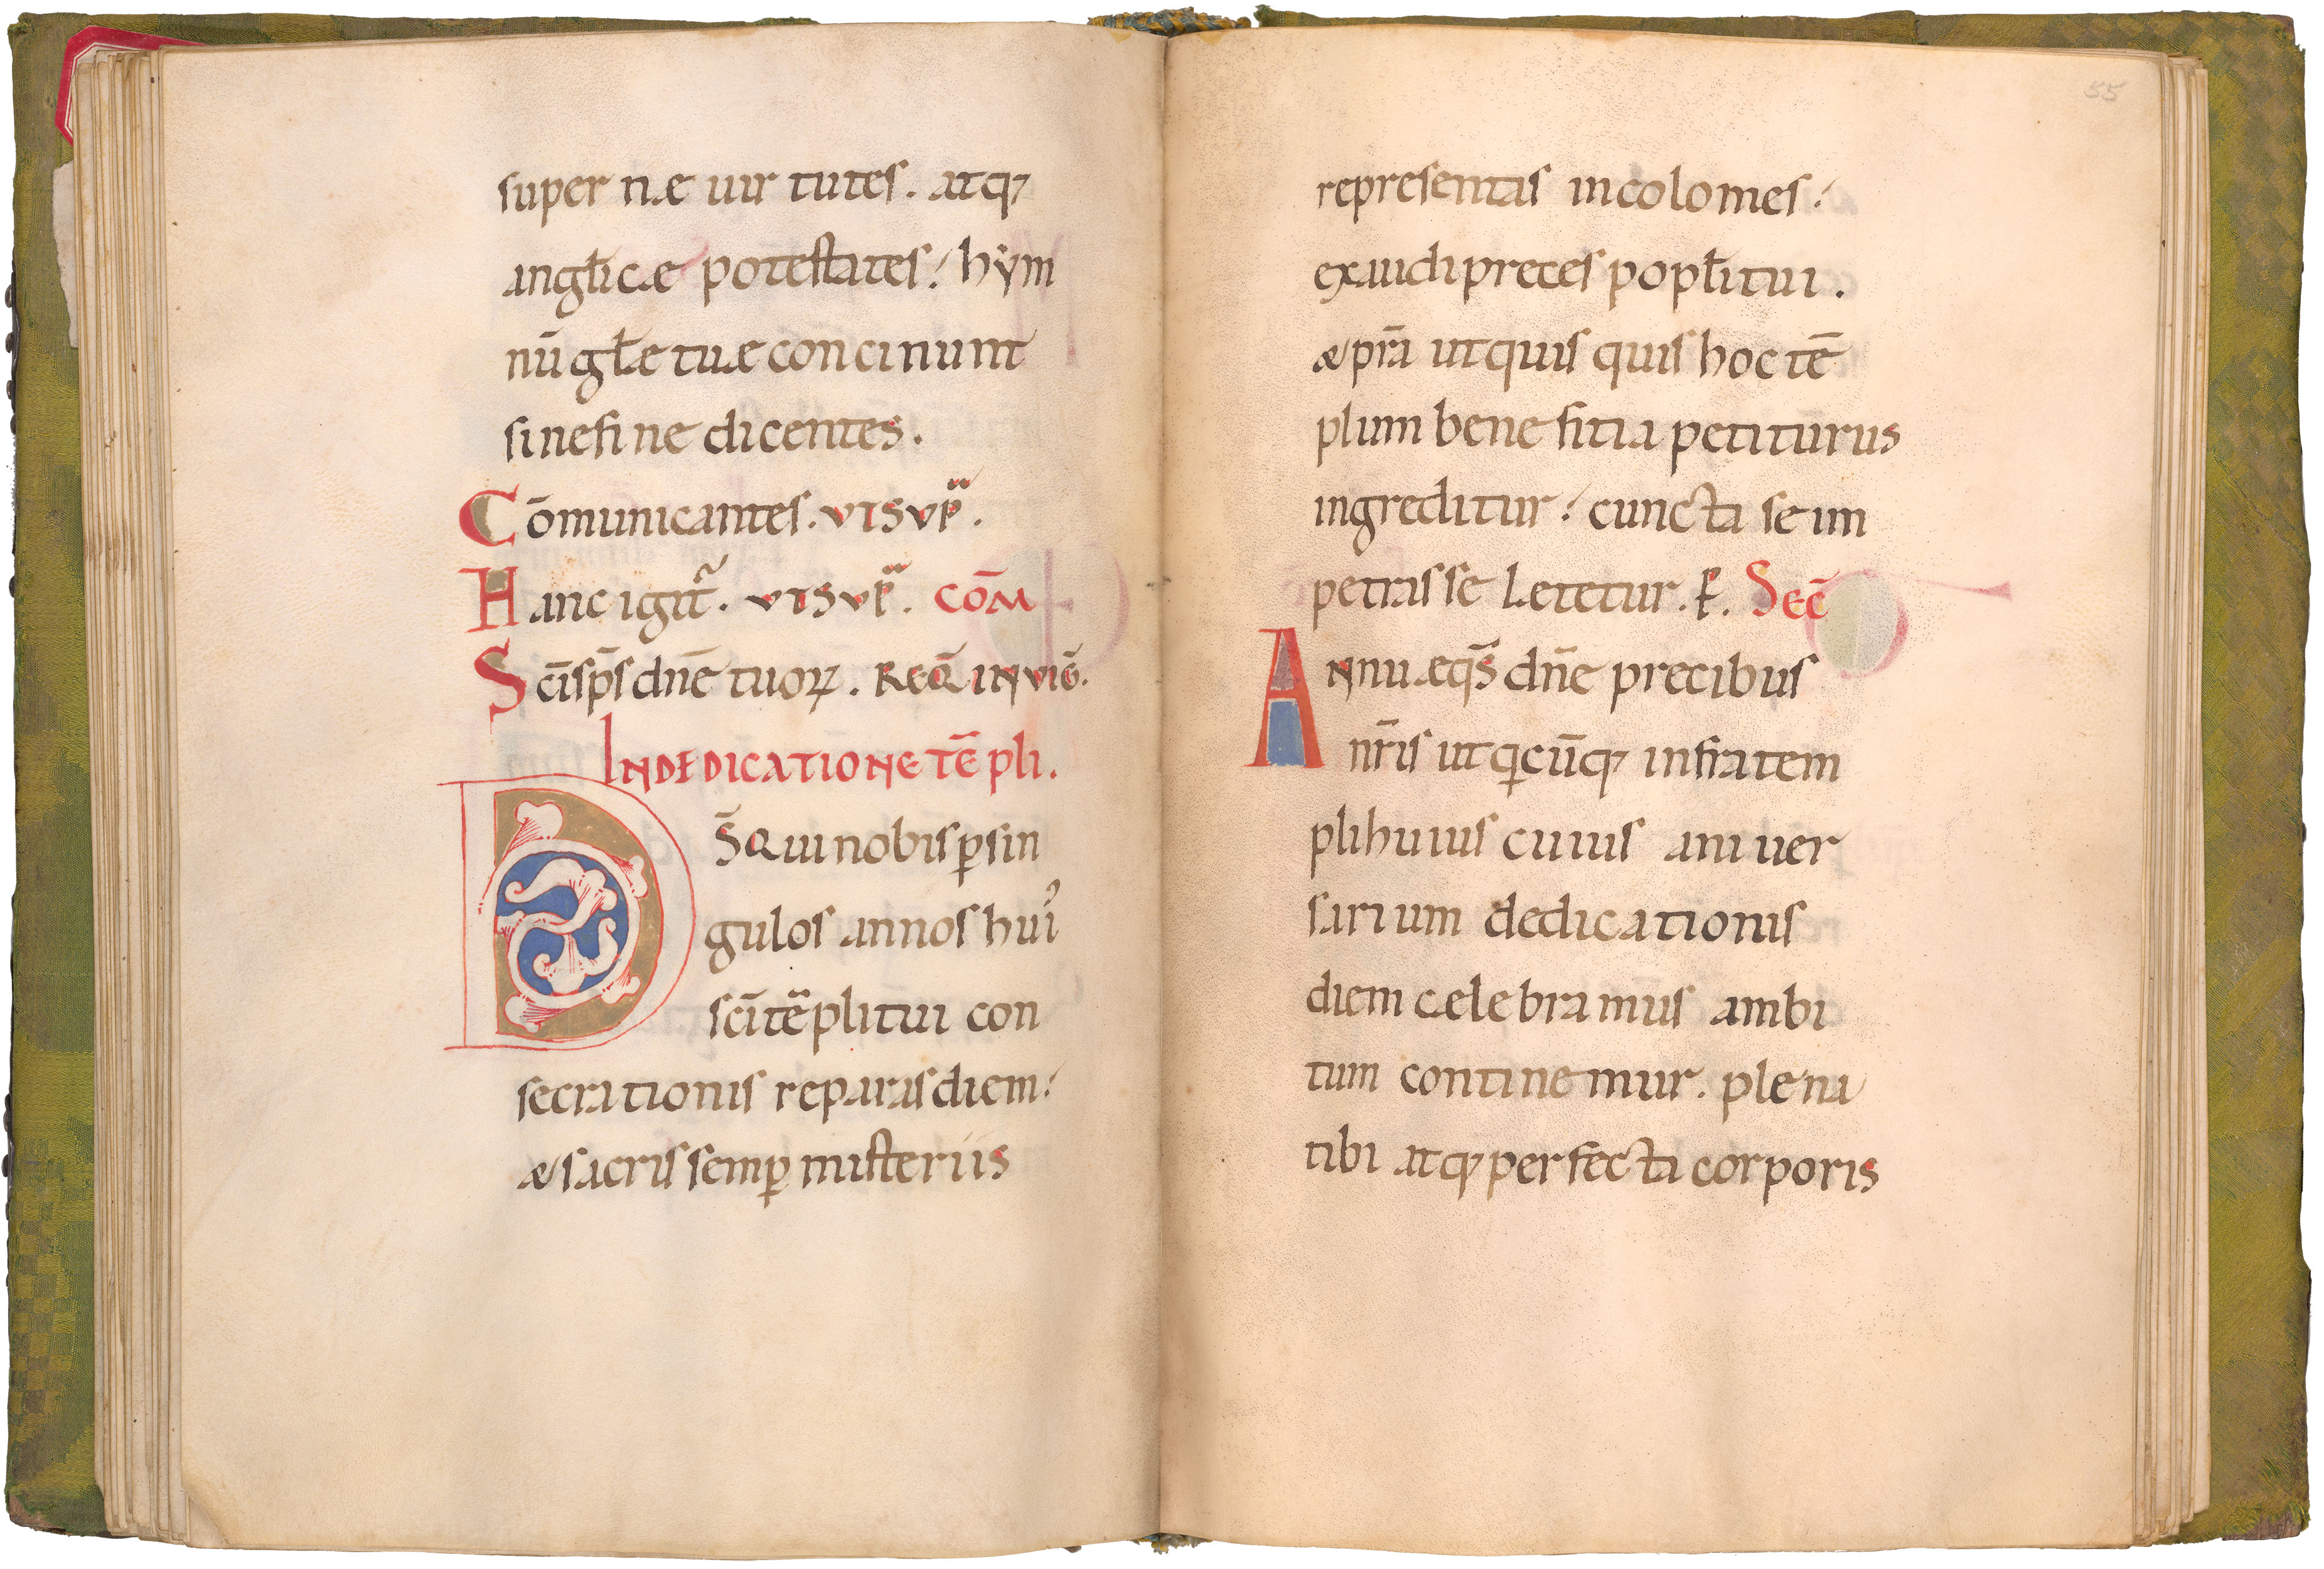 super næ uir tutes. atq;
angłicæ potestates: hẏm
nū głæ tuæ concinunt
sinefine dicentes.
Cōmunicantes. UTSUPͣ.
Hanc igit᷑. UTSUPͣ. COM̄
Sc̄is p̄s dn̄e tuoꝝ. REQ̄ INVIG̃.
INDEDICATIONE TĒpli.
DS̄ Qui nobis ꝑsin
gulos annos hui᾽
sc̄i tēpli tui con
secrationis reparas diem:
& sacris semꝑ misteriis
55
representas incolomes:
exaudi preces popłi tui.
& pr̄a ut quis quis hoc tē
plum bene fitia petiturus
ingreditur: cuncta se im
petrasse lętetur. P̱. Sec̄
Annuæ qs̄ dn̄e precibus
nr̄is ut q̇cūq; infra tem
pli huius cuius aniuer
sarium dedicationis
diem cælebramus ambi
tum contine mur. plena
tibi atq; perfecta corporis